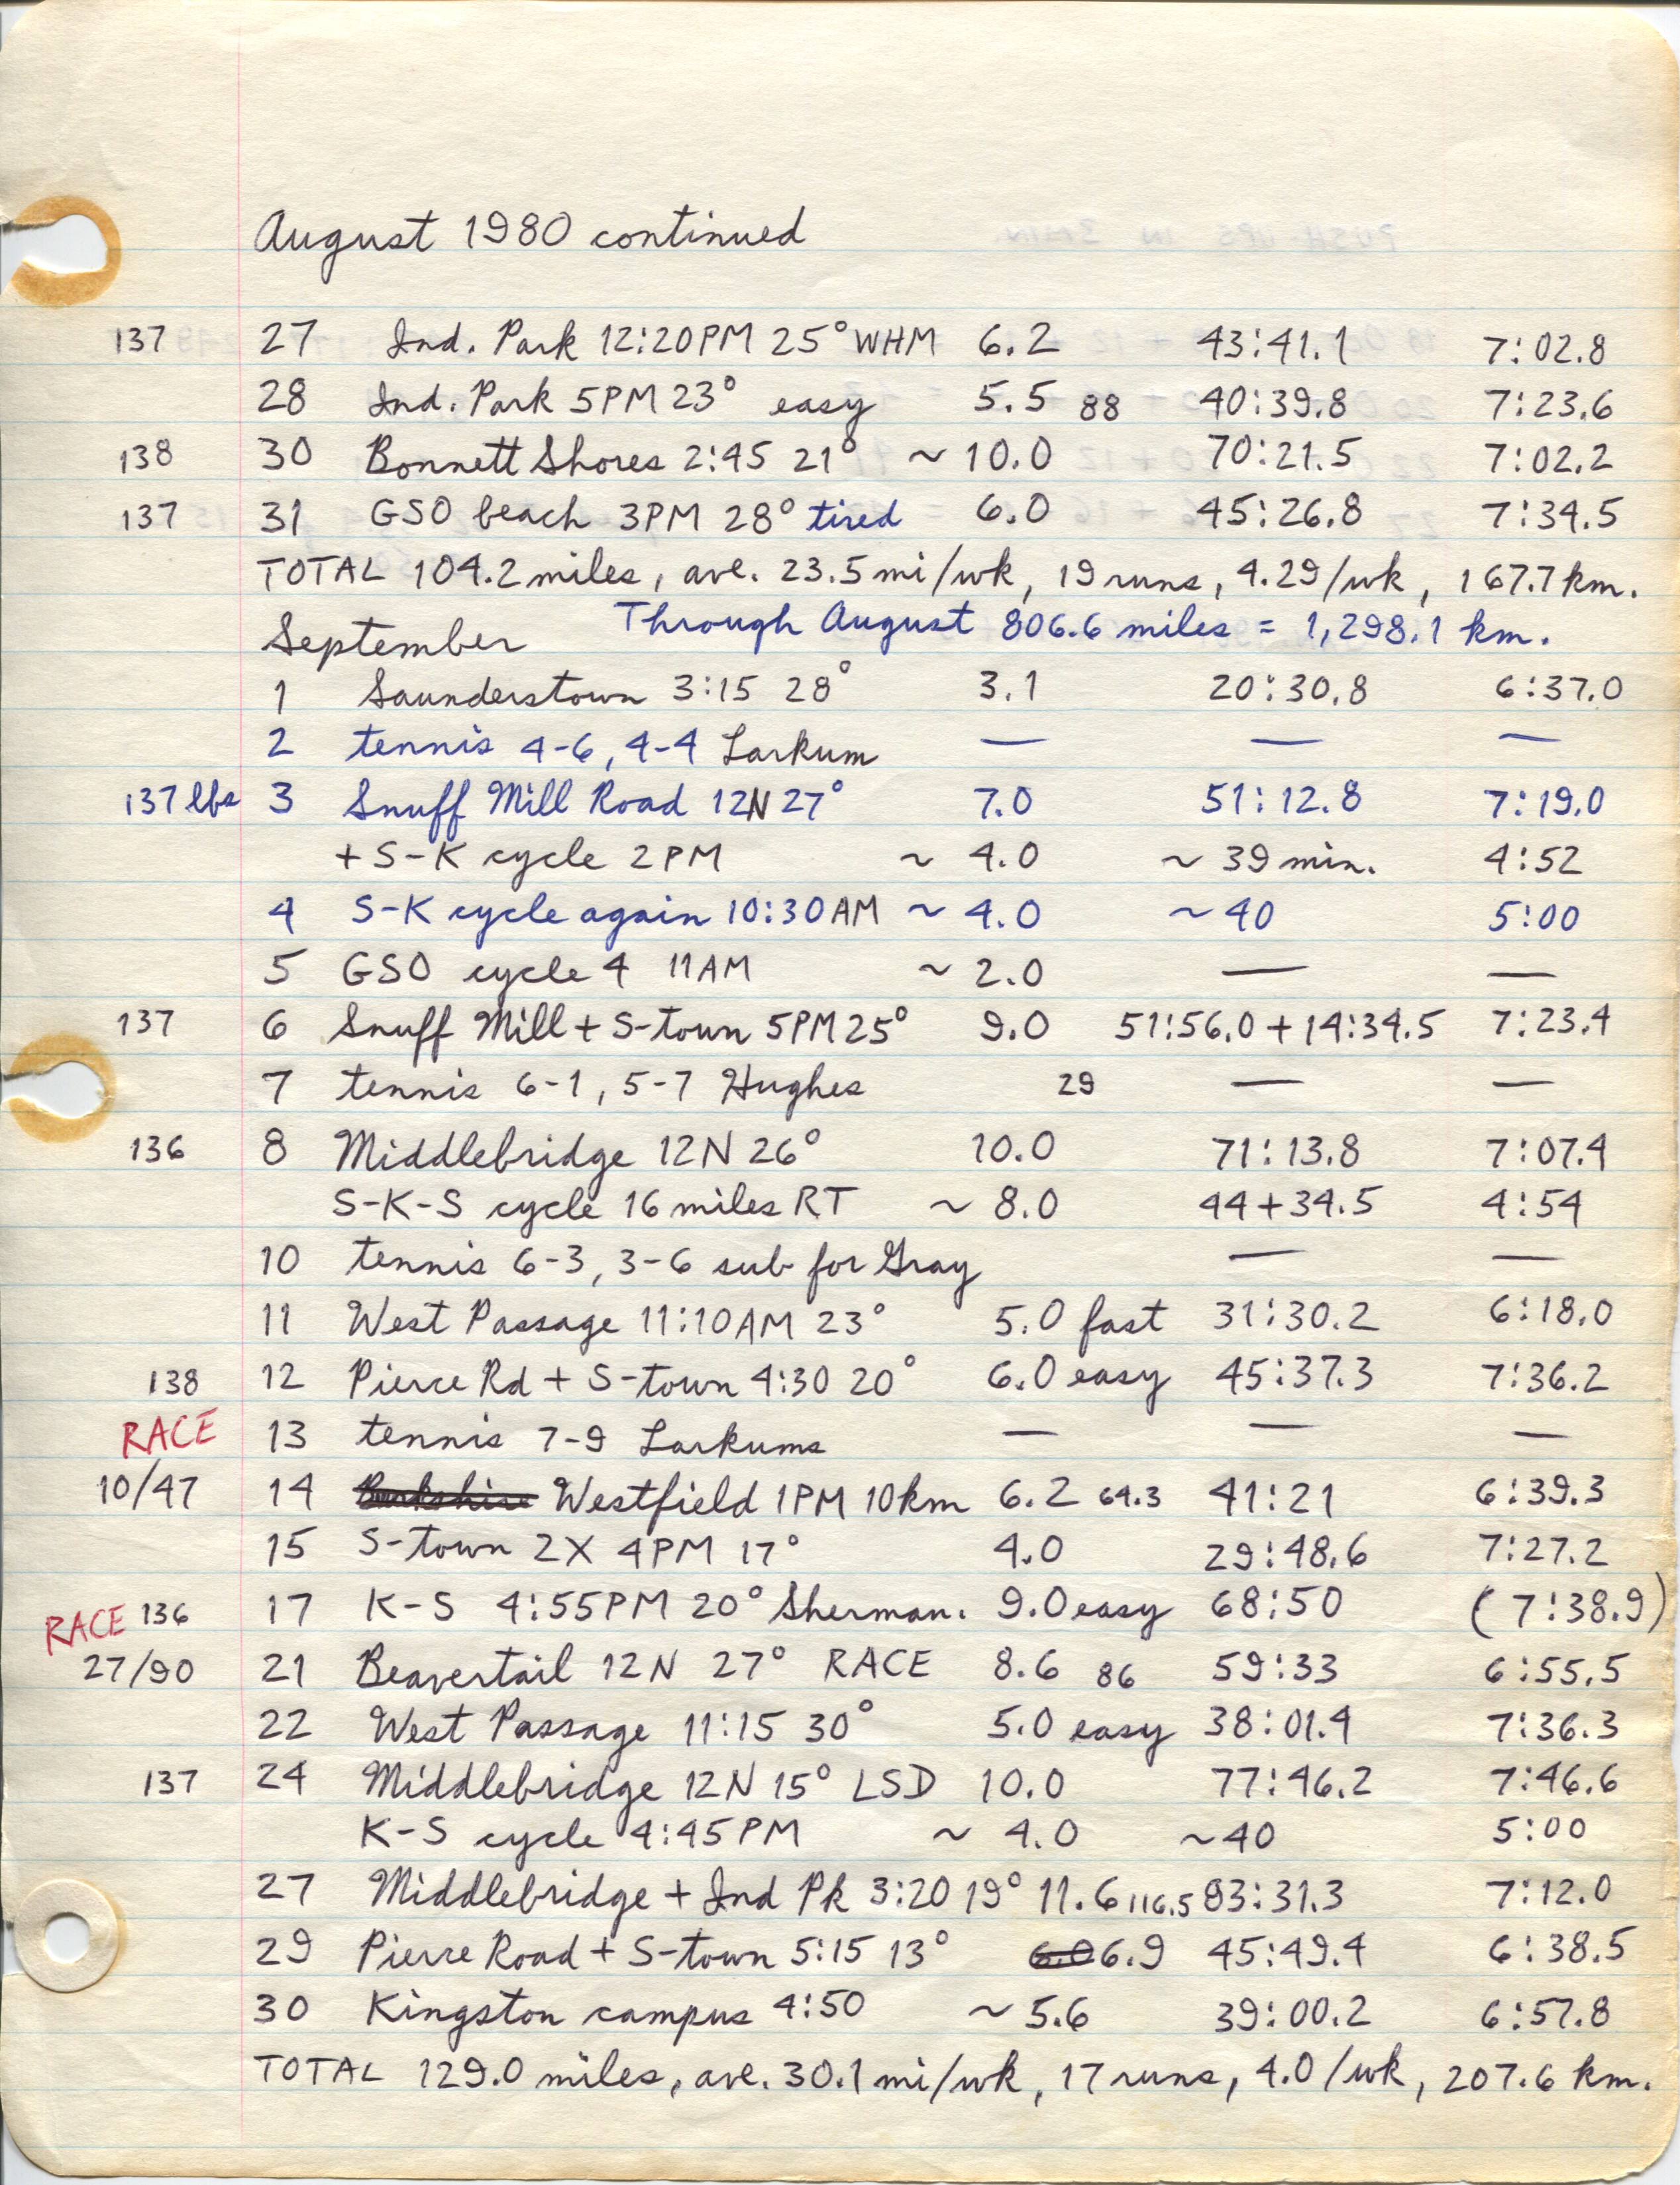 August 1980 continued
137 27 Ind. Park 12:20PM 25° WHM 6.2 43:41.1 7:02.8
28 Ind. Park 5PM 23° easy 5.5 88 40:39.8 7:23.6
138 30 Bonnett Shores 2:45 21° ~ 10.0 70:21.5 7:02.2
137 31 GSO beach 3PM 28° tired 6.0 45:26.8 7:34.5
TOTAL 104.2 miles, ave. 23.5 mi/wk, 19 runs, 4.29/wk, 167.7 km.
September Through August 806.6 miles = 1,298.1 km.
1 Saunderstown 3:15 28° 3.1 20:30.8 6:37.0
2 tennis 4-6, 4-4 Larkum — — —
137 lbs 3 Snuff Mill Road 12N 27° 7.0 51:12.8 7:19.0
+ S-K cycle 2PM ~ 4.0 ~ 39 min. 4:52
4 S-K cycle again 10:30AM ~ 4.0 ~40 5:00
5 GSO cycle 4 11AM ~ 2.0 — —
137 6 Snuff Mill + S-town 5PM 25° 9.0 51:56.0 + 14:34.5 7:23.4
7 tennis 6-1, 5-7 Hughes 29 — —
136 8 Middlebridge 12N 26° 10.0 71:13.8 7:07.4
S-K-S cycle 16 miles RT ~ 8.0 44+34.5 4:54
10 tennis 6-3, 3-6 sub for Gray — —
11 West Passage 11:10AM 23° 5.0 fast 31:30.2 6:18.0
138 12 Pierce Rd + S-town 4:30 20° 6.0 easy 45:37.3 7:36.2
RACE 13 tennis 7-9 Larkums — — —
10/47 14 Westfield 1PM 10km 6.2 64.3 41:21 6:39.3
15 S-town 2X 4PM 17° 4.0 29:48.6 7:27.2
RACE 136 17 K-S 4:55PM 20° Sherman. 9.0 easy 68:50 (7:38.9)
27/90 21 Beavertail 12N 27° RACE 8.6 86 59:33 6:55.5
22 West Passage 11:15 30° 5.0 easy 38:01.4 7:36.3
137 24 Middlebridge 12N 15° LSD 10.0 77:46.2 7:46.6
K-S cycle 4:45PM ~ 4.0 ~40 5:00
27 Middlebridge + Ind Pk 3:20 19° 11.6 116.5 83:31.3 7:12.0
29 Pierce Road + S-town 5:15 13° 6.0 6.9 45:49.4 6:38.5
30 Kingston campus 4:50 ~ 5.6 39:00.2 6:57.8
TOTAL 129.0 miles, ave. 30.1 mi/wk, 17 runs, 4.0/wk, 207.6 km.